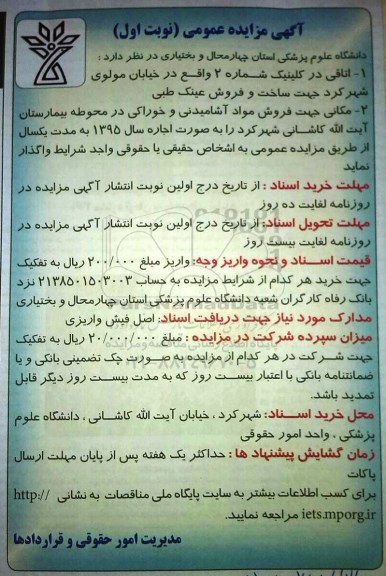 آگهی مزایده عمومی (نوبت اول)
دانشگاه علوم پزشکی استان چهارمحال و بختیاری در نظر دارد :
۱- اتاقی در کلینیک شماره ۲ واقع در خیابان مولوی
شهرکرد جهت ساخت و فروش عینک طبی
۲- مکانی جهت فروش مواد آشامیدنی و خوراکی در محوطه بیمارستان
آیت الله کاشانی شهرکرد را به صورت اجاره سال ۱۳۹۵ به مدت یکسال
از طریق مزایده عمومی به اشخاص حقیقی یا حقوقی واجد شرایط واگذار
نماید
مهلت خرید اسناد : از تاریخ درج اولین نوبت انتشار آگهی مزایده در
روزنامه لغایت ده روز
مهلت تحویل اسناد: از تاریخ درج اولین نوبت انتشار آگهی مزایده در
روزنامه لغایت بیست روز
قیمت اسناد و نحوه واریز وجه: واریز مبلغ ۲۰۰/۰۰۰ ریال به تفکیک
جهت خرید هر کدام از شرایط مزایده به حساب ۲۱۳۸۵۰۱۵۰۳۰۰۳ نزد
بانک رفاه کارگران شعبه دانشگاه علوم پزشکی استان چهارمحال و بختیاری
مدارک مورد نیاز جهت دریافت اسناد: اصل فیش واریزی
میزان سپرده شرکت در مزایده : مبلغ ۲۰/۰۰۰/۰۰۰ ریال به تفکیک
جهت شرکت در هر کدام از مزایده به صورت چک تضمینی بانکی و یا
ضمانتنامه بانکی با اعتبار بیست روز که به مدت بیست روز دیگر قابل
تمدید باشد.
محل خرید اسناد: شهرکرد ، خیابان آیت الله کاشانی ، دانشگاه علوم
پزشکی ، واحد امور حقوقی
زمان گشایش پیشنهاد ها : حداکثر یک هفته پس از پایان مهلت ارسال
پاکات
برای کسب اطلاعات بیشتر به سایت پایگاه ملی مناقصات به نشانی http://
iets.mporg.ir مراجعه نمایید.
مدیریت امور حقوقی و قراردادها